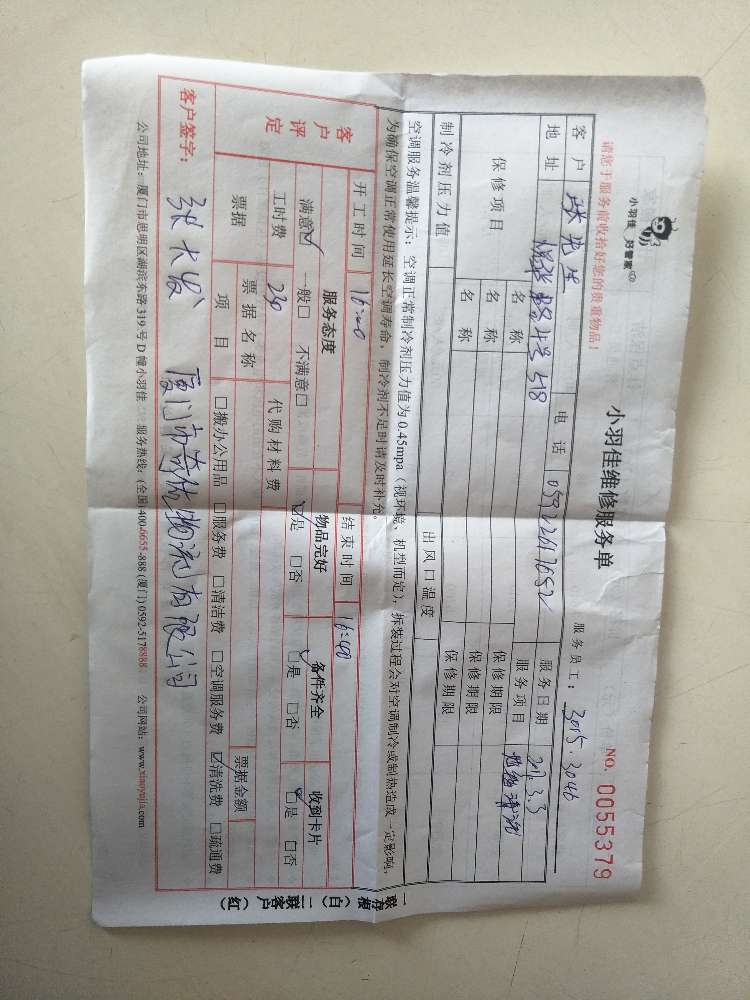 小羽佳 好管家
请您于服务前收拾好您的贵重物品！
小羽佳维修服务单
服务员工：3015.3046
NO. 0055379
客户 先生 电话 服务日期 3.3
地址 518 服务项目 清洗
保修项目 名称 保修期限
名称 保修期限
名称 保修期限
制冷剂压力值 出风口温度
空调服务温馨提示：空调正常制冷剂压力值为0.45mpa（视环境、机型而定），拆装过程会对空调制冷或制热造成一定影响，
为确保空调正常使用延长空调寿命，制冷剂不足时请及时补充。
开工时间 16:00 结束时间 16:40
客户评定 服务态度 物品完好 备件齐全 收到卡片
满意☑ 一般□ 不满意□ ☑是 □否 ☑是 □否 ☑是 □否
工时费 230 代购材料费
票据 票据名称 票据金额
项目 □搬办公用品 □服务费 □清洁费 □空调服务费 ☑清洗费 □疏通费
客户签字： 张大发 厦门市 物流有限公司
公司地址：厦门市思明区湖滨东路319号D幢小羽佳 服务热线：(全国)400-6655-888 (厦门) 0592-5178888 公司网站：www.xiaoyujia.com
一联存根（白） 二联客户（红）